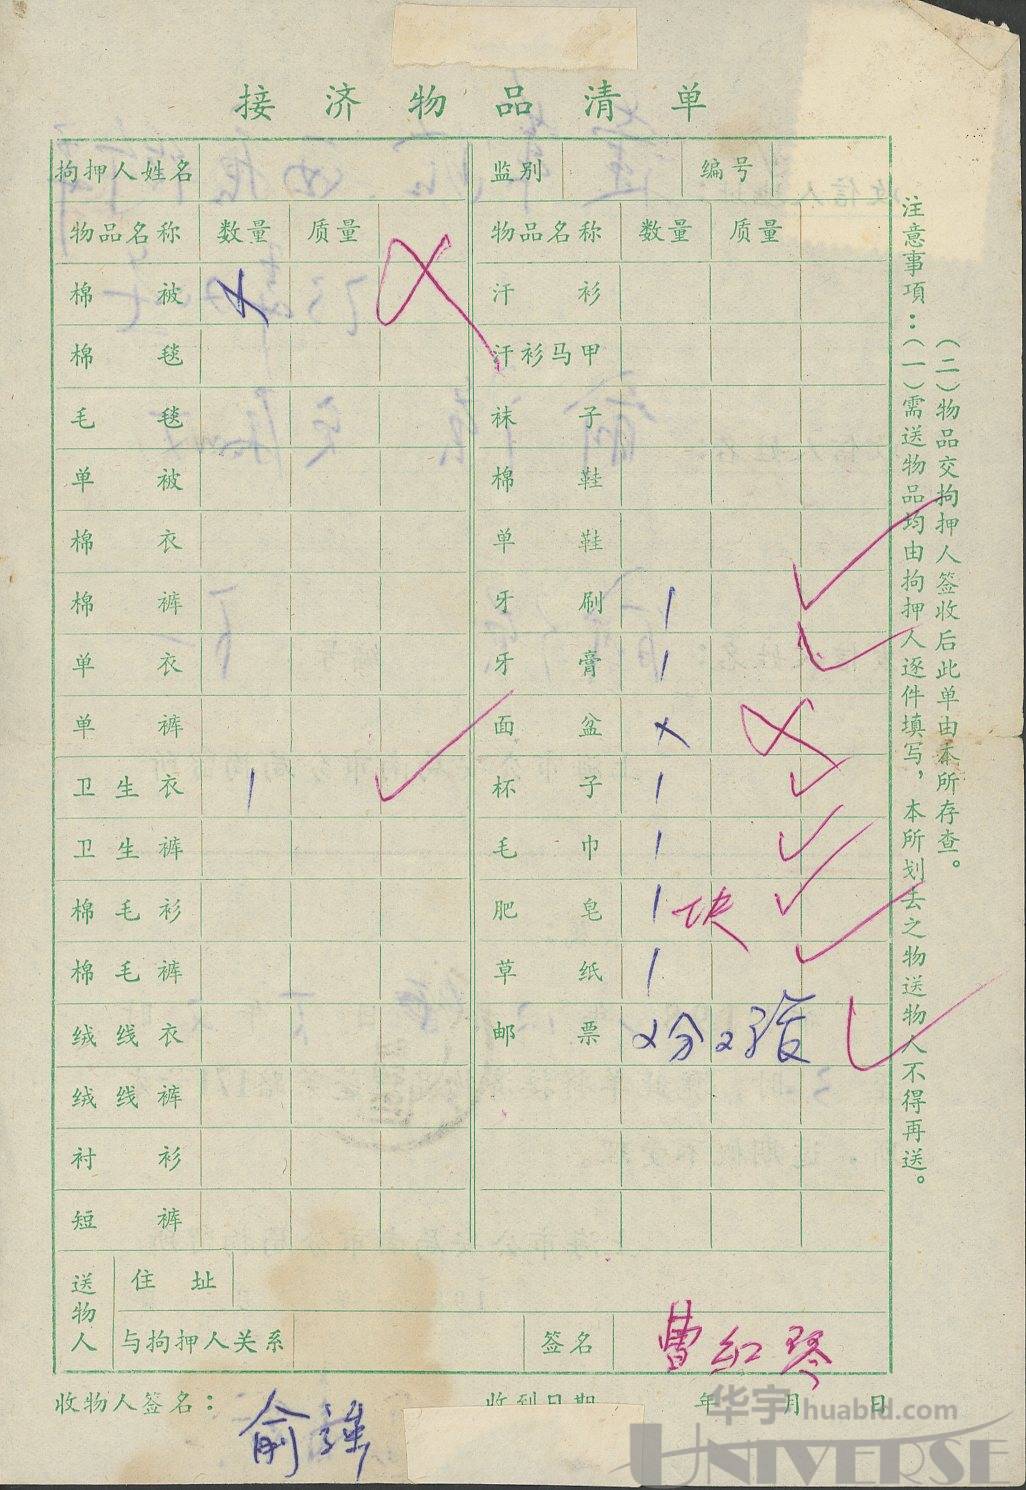 接济物品清单
拘押人姓名 监别 编号
物品名称 数量 质量 物品名称 数量 质量
棉被 汗衫
棉毯 汗衫马甲
毛毯 袜子
单被 棉鞋
棉衣 单鞋
棉裤 牙刷 1
单衣 牙膏 1
单裤 面盆 x
卫生衣 1 杯子 1
卫生裤 毛巾 1
棉毛衫 肥皂 1块
棉毛裤 草纸 1
绒线衣 邮票
绒线裤
衬衫
短裤
送物人 住址
与拘押人关系 签名 曹红琴
收物人签名： 收到日期 年 月 日
俞
注意事項：(一)需送物品均由拘押人逐件填写，本所划去之物送物人不得再送。
(二)物品交拘押人签收后此单由本所存查。
华宇huabid.com
UNIVERSE